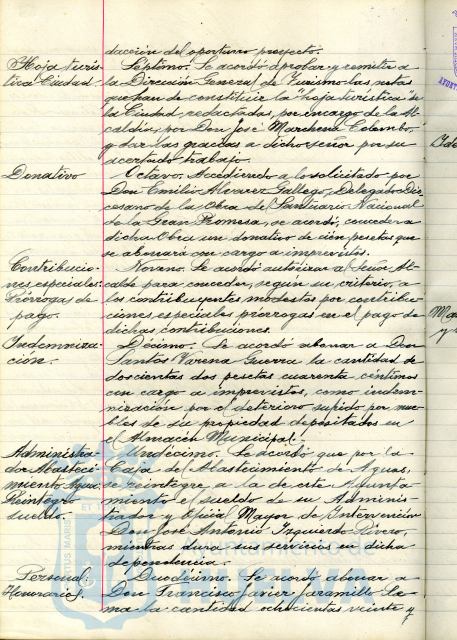 dacción del oportuno proyecto.
Hoja turís- Séptimo. Se acordó aprobar y remitir a
tica Ciudad. la Dirección General de Turismo las notas
que han de constituir la "hoja turística" de
la Ciudad, redactadas, por encargo de la Al-
caldía, por Don José Marchena Colombo,
y dar las gracias a dicho señor por su
acertado trabajo.
Donativo Octavo. Accediendo a lo solicitado por
Don Emilio Alvarez Gallego, Delegado Dio-
cesano de la Obra del Santuario Nacional
de la Gran Promesa, se acordó, conceder a
dicha Obra un donativo de cien pesetas que
se abonará con cargo a imprevistos.
Contribucio- Noveno. Se acordó autorizar al Señor Al-
nes especiales: calde para conceder, según su criterio, a
Prórrogas de los contribuyentes modestos por contribu-
pago. ciones especiales prórrogas en el pago de
dichas contribuciones.
Indemniza- Décimo. Se acordó abonar a Don
ción. Santos Varena Guerra la cantidad de
doscientas dos pesetas cuarenta céntimos
con cargo a imprevistos, como indem-
nización por el deterioro sufrido por mue-
bles de su propiedad depositados en
el Almacén Municipal.
Administra- Undécimo. Se acordó que por la
dor Abasteci- Caja de Abastecimiento de Aguas,
miento Agua: se reintegre a la de este Ayunta-
Reintegro miento el sueldo de su Adminis-
sueldo. trador y Oficial Mayor de Intervención
Don José Antonio Izquierdo Rivero,
mientras dure su servicio en dicha
dependencia.
Personal: Duodécimo. Se acordó abonar a
Honorarios. Don Francisco Javier Jaramillo Le-
ma la cantidad ochocientas veinte y
Ayuntamiento de
HUELVA